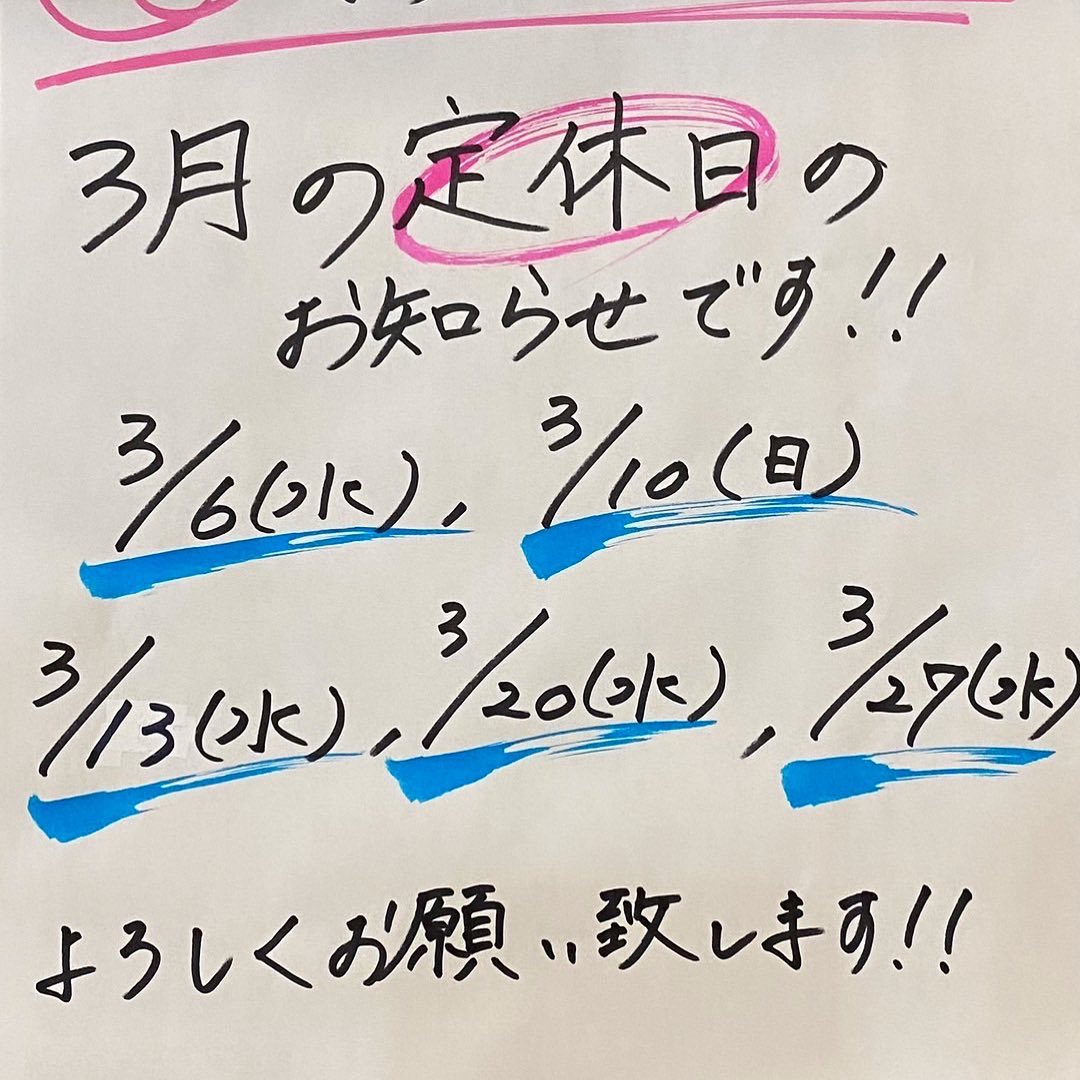 3月の定休日の
お知らせです!!
3/6(水), 3/10(日)
3/13(水), 3/20(水), 3/27(水)
よろしくお願い致します!!